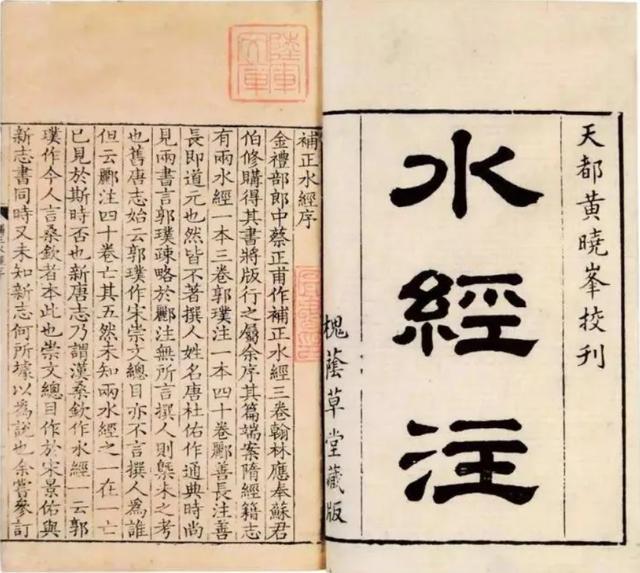 天都黄曉峯挍刊
水經注
槐蔭草堂藏版
補正水經序
金禮部郎中蔡正甫作補正水經三卷翰林應奉蘇君
伯修購得其書將版行之屬余序其篇端案隋經籍志
有兩水經一本三卷郭璞注一本四十卷酈善長注善
長即道元也然皆不著撰人姓名唐杜佑作通典時尚
見兩書言郭璞疎略於酈注無所言撰人則槩未之考
也舊唐志始云郭璞作宋崇文總目亦不言撰人為誰
但云酈注四十卷亡其五然未知兩水經之一在一亡
已見於斯時否也新唐志乃謂漢桑欽作水經一云郭
璞作今人言桑欽者本此也崇文總目作於宋景佑與
新志書同時又未知新志何所據以為說也余嘗參訂
陸軍
文庫